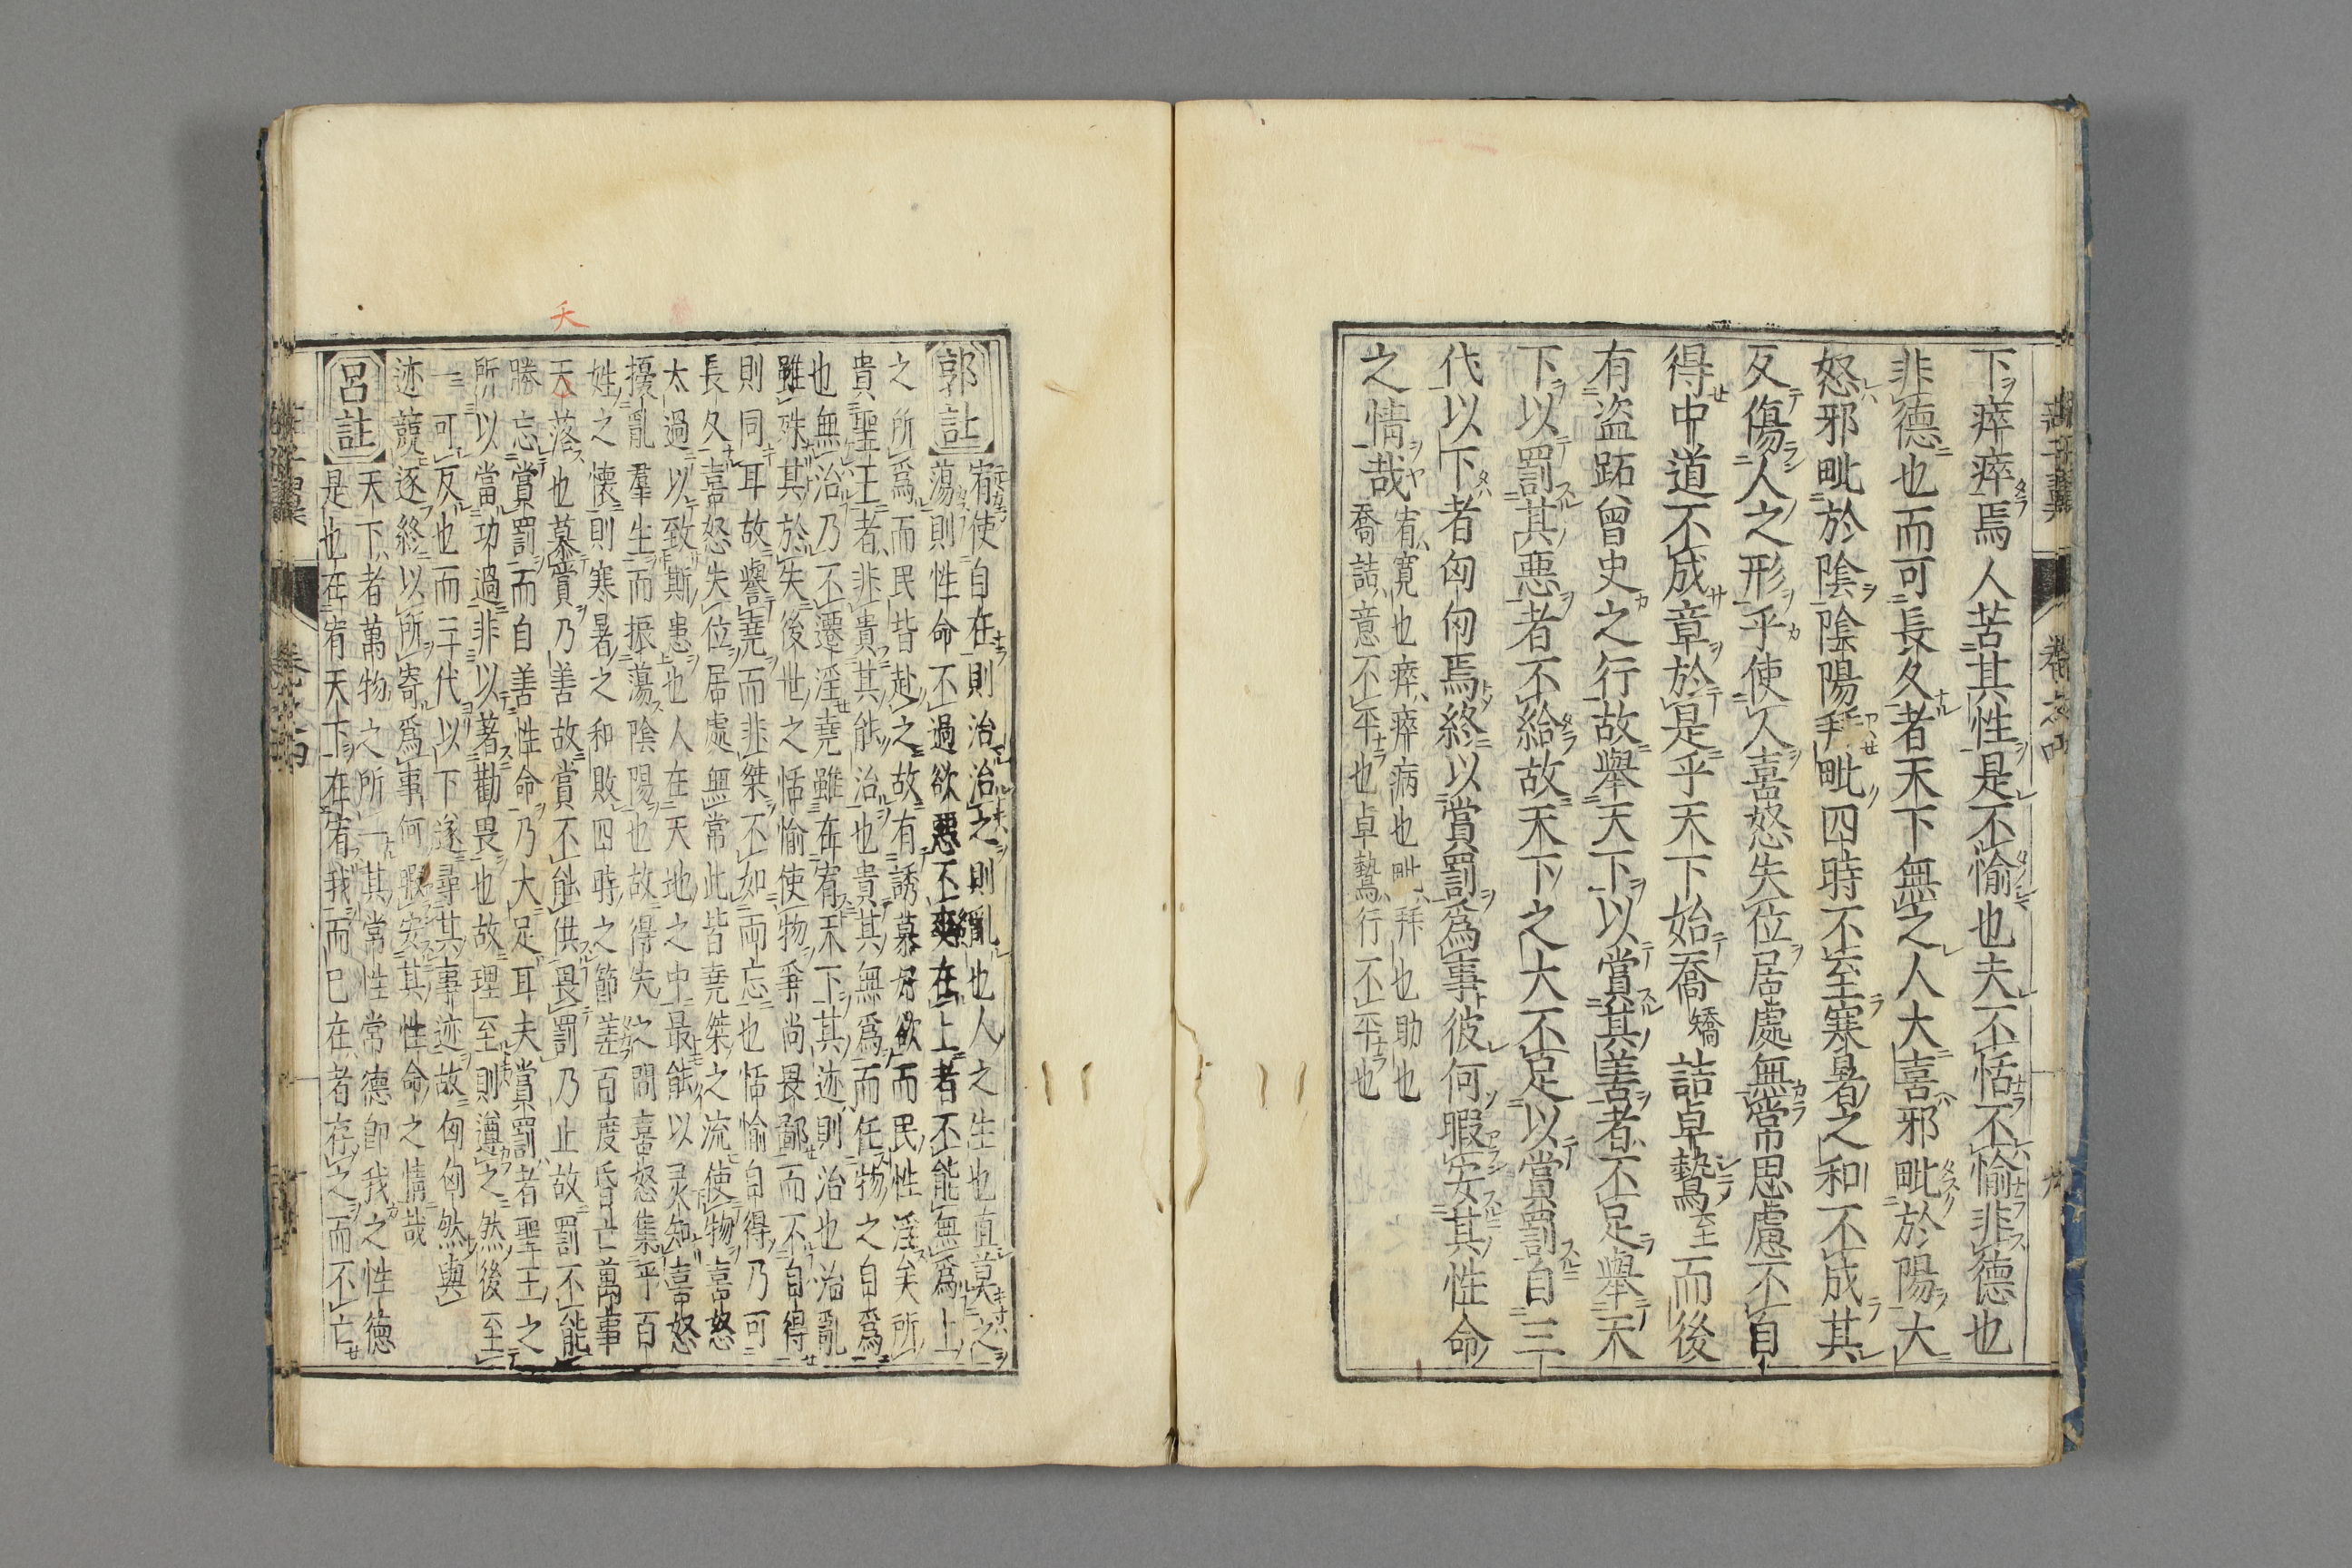 下瘁瘁焉人苦其性是不愉也夫不恬不愉非德也
非德也而可長久者天下無之人大喜邪毗於陽大
怒邪毗於陰陰陽并毗四時不至寒暑之和不成其
反傷人之形乎使人喜怒失位居處無常思慮不自
得中道不成章於是乎天下始喬矯詰卓鷙至而後
有盜跖曾史之行故舉天下以賞其善者不足舉天
下以罰其惡者不給故天下之大不足以賞罰自三
代以下者匈匈焉終以賞罰為事彼何暇安其性命
之情哉
宥寬也瘁瘁病也毗拜也助也
喬詰意不平也卓鷙行不平也
郭註
宥使自在則治治之則亂也人之生也直莫之
蕩則性命不過欲惡不爽在上者不能無為上
之所為而民皆赴之故有誘慕好欲而民性淫矣所
貴聖王者非貴其能治也貴其無為而任物之自為
也無治乃不遷淫堯雖在宥天下其迹則治也治亂
雖殊其於失後世之恬愉使物爭尚畏鄙而不自得
則同耳故譽堯而非桀不如兩忘也恬愉自得乃可
長久喜怒失位居處無常此皆堯桀之流使物喜怒
太過以致斯患也人在天地之中最能以灵知喜怒
擾亂羣生而振蕩陰陽也故得失之間喜怒集乎百
姓之懷則寒暑之和敗四時之節差百度昏亡萬事
夭落也慕賞乃善故賞不能供畏罰乃止故罰不能
勝忘賞罰而自善性命乃大足耳夫賞罰者聖王之
所以當功過非以著勸畏也故理至則遺之然後至
一可反也而三代以下遂尋其事迹故匈匈然與
迹競逐終以所寄為事何暇安其性命之情哉
呂註
天下者萬物之所一其常性常德即我之性德
是也在宥天下在宥我而已在者存之而不亡
夭